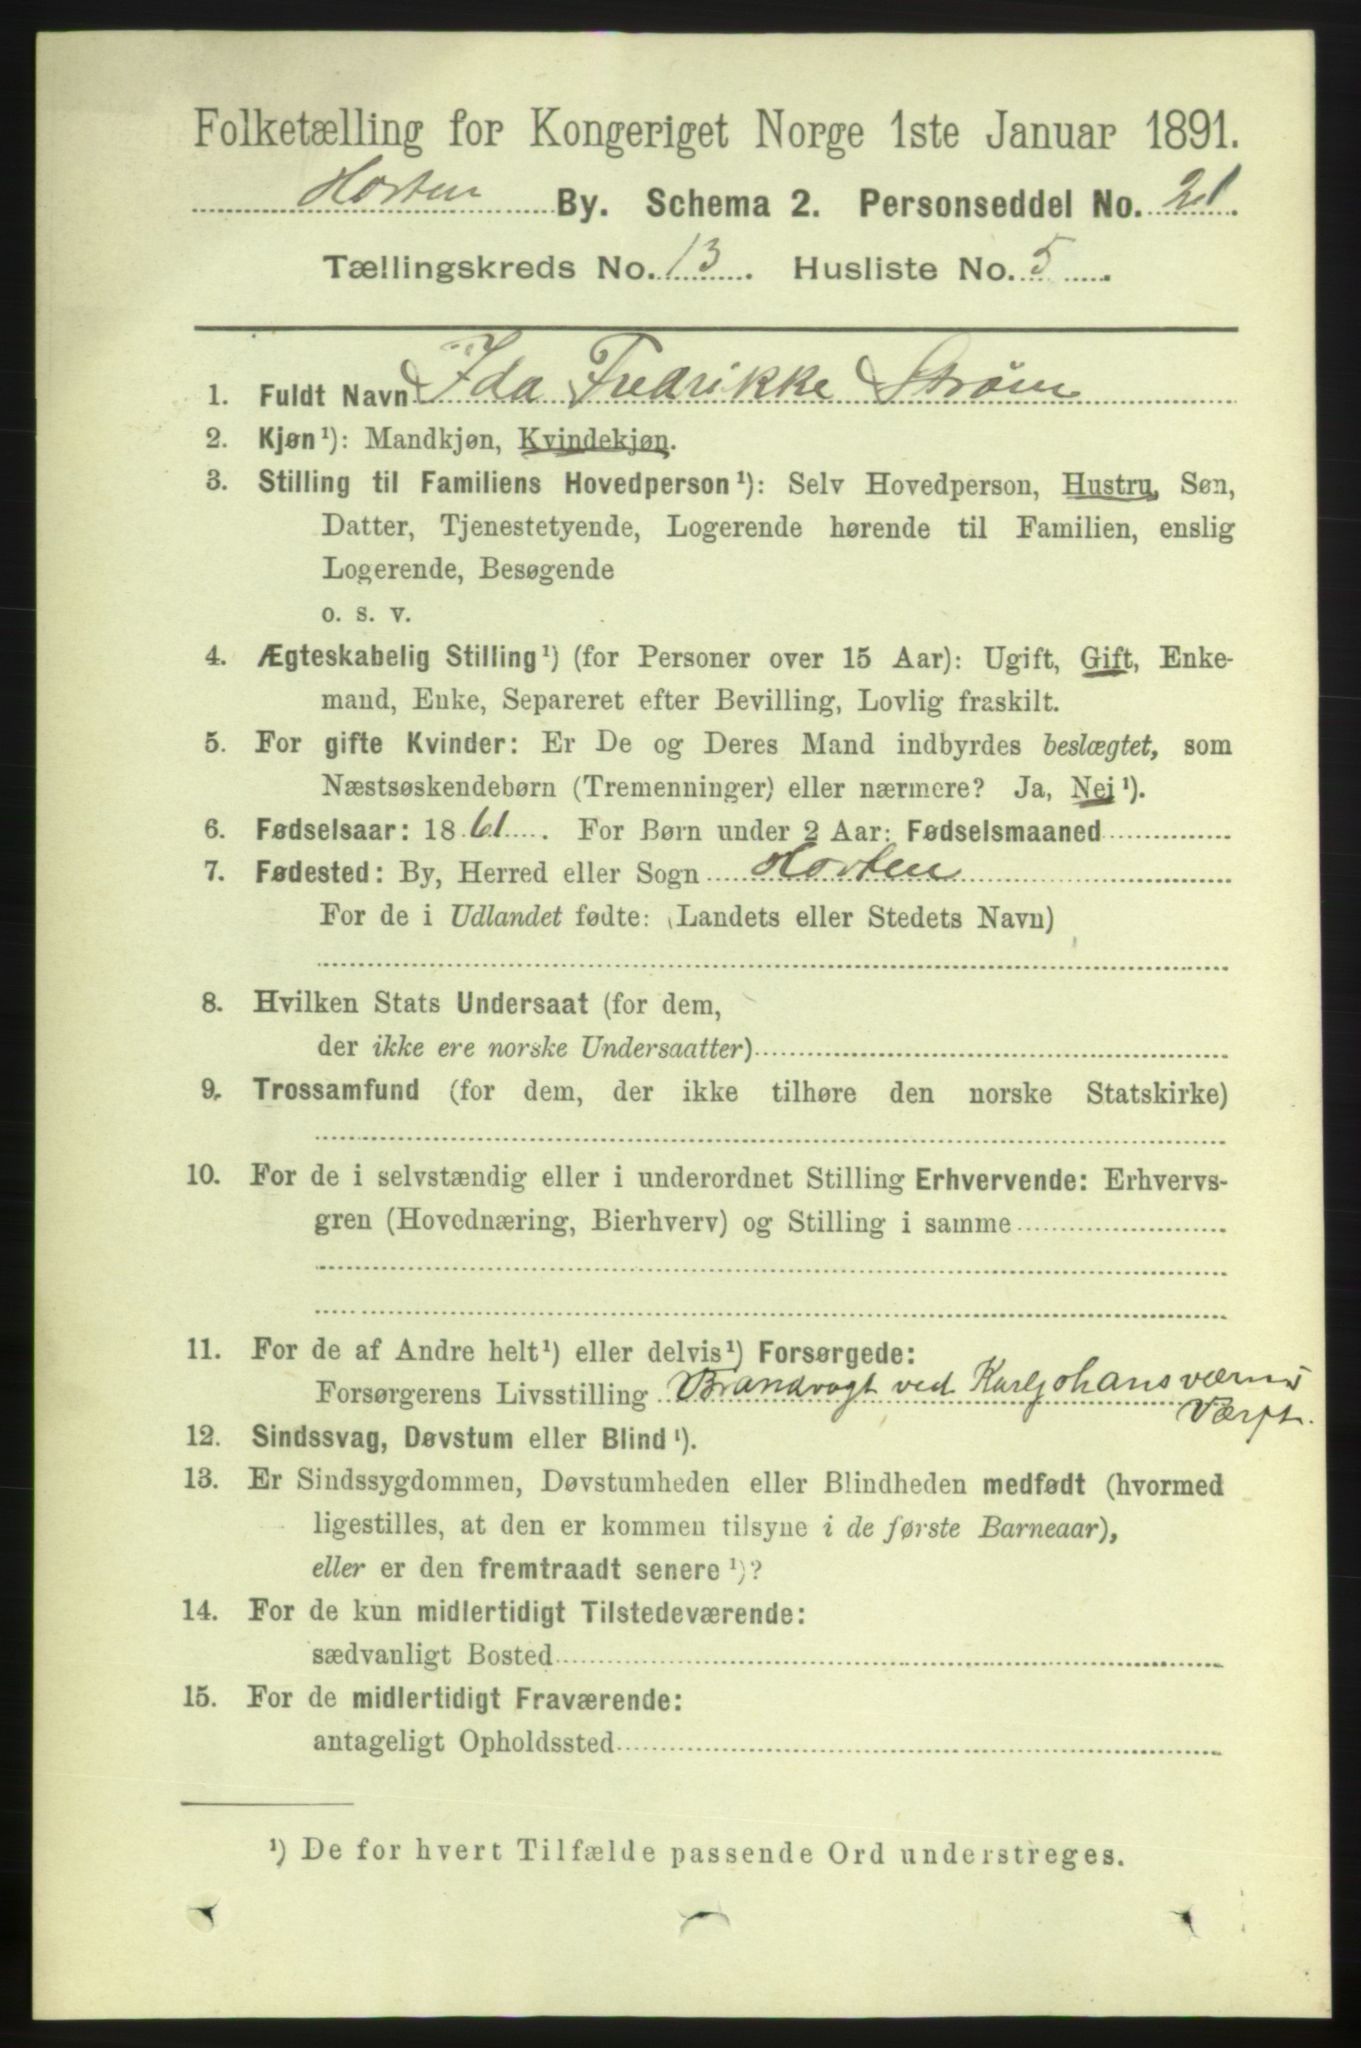 Folketælling for Kongeriget Norge 1ste Januar 1891.
Horten By. Schema 2. Personseddel No. 21.
Tællingskreds No. 13. Husliste No. 5.
1. Fuldt Navn Ida Fredrikke Strøm
2. Kjøn¹): Mandkjøn, Kvindekjøn.
3. Stilling til Familiens Hovedperson¹): Selv Hovedperson, Hustru, Søn,
Datter, Tjenestetyende, Logerende hørende til Familien, enslig
Logerende, Besøgende
o. s. v.
4. Ægteskabelig Stilling¹) (for Personer over 15 Aar): Ugift, Gift, Enke-
mand, Enke, Separeret efter Bevilling, Lovlig fraskilt.
5. For gifte Kvinder: Er De og Deres Mand indbyrdes beslægtet, som
Næstsøskendebørn (Tremenninger) eller nærmere? Ja, Nej¹).
6. Fødselsaar: 1861. For Børn under 2 Aar: Fødselsmaaned
7. Fødested: By, Herred eller Sogn Horten
For de i Udlandet fødte: (Landets eller Stedets Navn)
8. Hvilken Stats Undersaat (for dem,
der ikke ere norske Undersaatter)
9. Trossamfund (for dem, der ikke tilhøre den norske Statskirke)
10. For de i selvstændig eller i underordnet Stilling Erhvervende: Erhvervs-
gren (Hovednæring, Bierhverv) og Stilling i samme
11. For de af Andre helt¹) eller delvis¹) Forsørgede:
Forsørgerens Livsstilling Brandvagt ved Karljohansværns
Værft.
12. Sindssvag, Døvstum eller Blind¹).
13. Er Sindssygdommen, Døvstumheden eller Blindheden medfødt (hvormed
ligestilles, at den er kommen tilsyne i de første Barneaar),
eller er den fremtraadt senere¹)?
14. For de kun midlertidigt Tilstedeværende:
sædvanligt Bosted
15. For de midlertidigt Fraværende:
antageligt Opholdssted
¹) De for hvert Tilfælde passende Ord understreges.